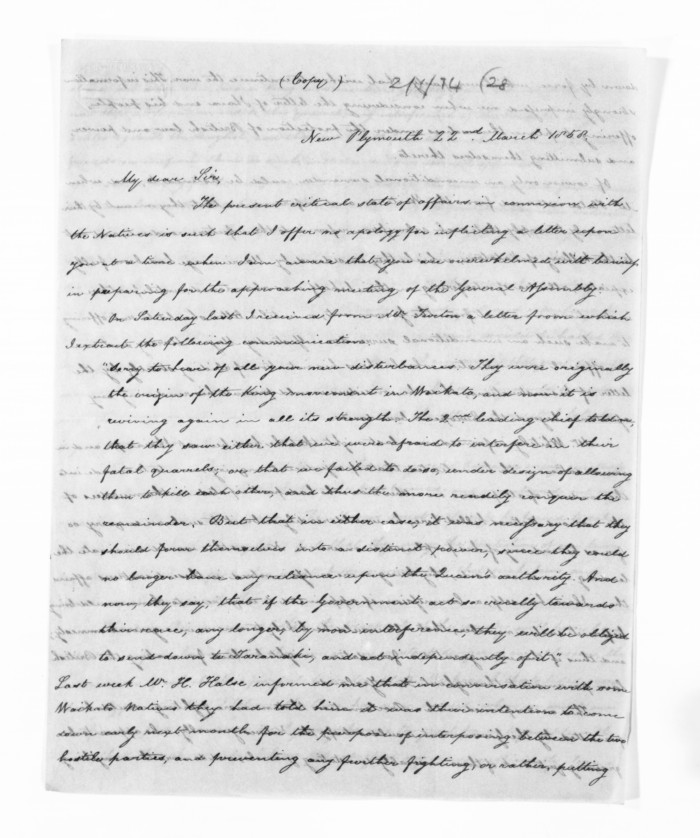 (Copy) (28
New Plymouth 22nd March 1858
My dear Sir,
The present critical state of affairs in connexion with
the Natives is such that I offer no apology for inflicting a letter upon
you at a time when I am aware that you are overwhelmed with business
in preparing for the approaching meeting of the General Assembly.
On Saturday last I received from Mr. Turton a letter from which
I extract the following communication.
"Sorry to hear of all your new disturbances. They were originally
the origin of the King movement in Waikato, and now it is
reviving again in all its strength. The 2nd leading chief told me,
that they saw either that we were afraid to interfere in their
fatal quarrels, or that we failed to do so, under design of allowing
them to kill each other, and thus the more readily conquer the
remainder. But that in either case, it was necessary that they
should form themselves into a distinct power, since they could
no longer have any reliance upon the Queen's authority. And
now, they say, that if the Government act so cruelly towards
their race, any longer, by non interference, they will be obliged
to send down to Taranaki, and act independently of it."
Last week Mr. H. Halse informed me that in conversation with some
Waikato Natives they had told him it was their intention to come
down early next month for the purpose of interposing between the two
hostile parties, and preventing any further fighting, or rather, putting